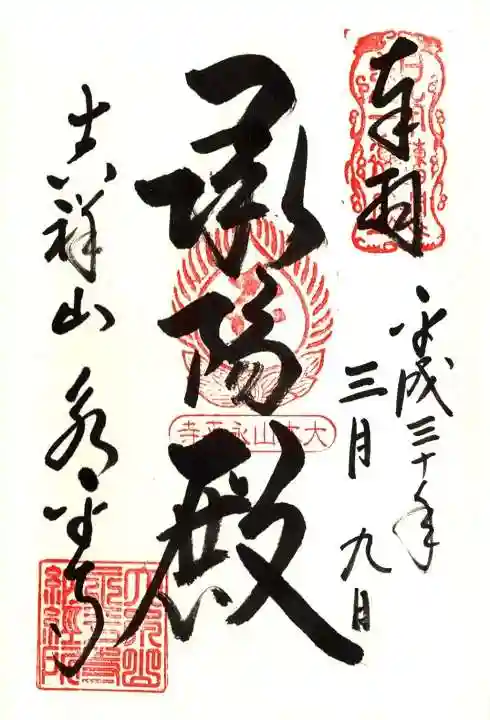 奉拝
平成三十年
三月九日
承陽殿
大本山永平寺
吉祥山 永平寺